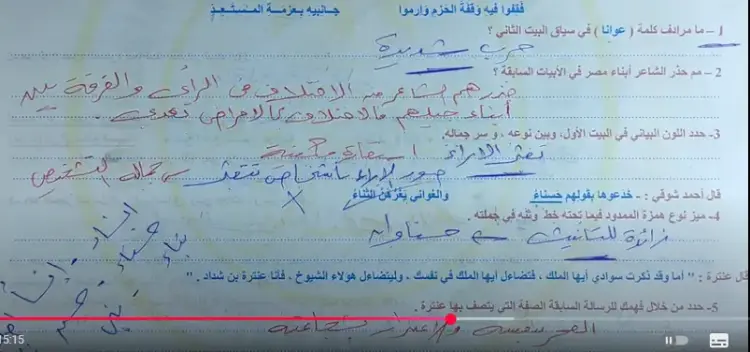 فقفوا فيه وقفة الحزم وارموا جانبيه بعزمة المستعد
1 – ما مرادف كلمة ( عوانا ) في سياق البيت الثاني ؟
حرب شديدة
2 – مم حذر الشاعر أبناء مصر في الأبيات السابقة ؟
حذرهم الشاعر من الاختلاف فى الرأى والفرقة بين
أبناء جيلهم فالاختلاف كالأمراض تعدى .
3- حدد اللون البياني في البيت الأول، وبين نوعه ، وسر جماله.
تعثر الآراء استعارة مكنية
صور الآراء بأشخاص تتعثر س جماله التشخيص
قال أحمد شوقي : - خدعوها بقولهم حسناء والغواني يغرهن الثناء
4- ميز نوع همزة الممدود فيما تحته خط وثنه في جملته .
زائدة للتأنيث حسناوان
قال عنترة : " أما وقد ذكرت سوادي أيها الملك ، فتضاءل أيها الملك في نفسك ، وليتضاءل هولاء الشيوخ ، فأنا عنترة بن شداد . "
5- حدد من خلال فهمك للرسالة السابقة الصفة التي يتصف بها عنترة .
الفخر بنفسه والاعتزاز بشجاعته
بناء
15:15